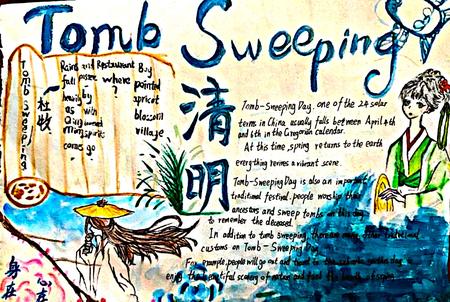 Tomb Sweeping
Tomb Sweeping
杜牧
Rains and Restaurant Buy
fall where pointed
by ? apricot
as with blossom
spirits village
go
清明
Tomb-Sweeping Day, one of the 24 solar
terms in China, usually falls between April 4th
and 6th in the Gregorian calendar.
At this time, spring returns to the earth
everything revives a vibrant scene.
Tomb-Sweeping Day is also an important
traditional festival, people worship their
ancestors and sweep tombs on this day
to remember the deceased.
In addition to tomb sweeping, there are many other traditional
customs on Tomb-Sweeping Day.
For example, people will go out and to the on this day
enjoy the beautiful scenery of nature and feel the breath of spring